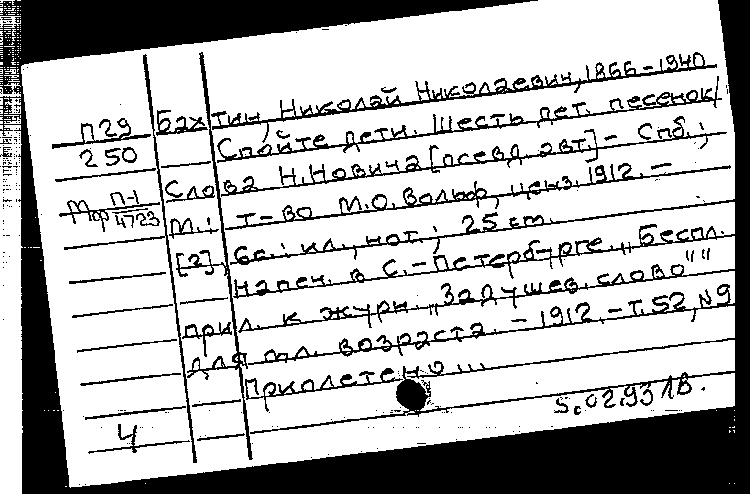 П29 Бахтин, Николай Николаевич, 1866-1940
250 Спойте дети. Шесть дет. песенок/
Мф П-1/4723 Слова Н.Новича [псевд. авт.] - Спб.;
М.: Т-во М.О.Вольф, ценз. 1912. -
[2], 6с.: ил., нот.; 25 см.
Напеч. в С.-Петербурге. „Беспл.
прил. к журн. „Задушев. слово""
для мл. возраста. - 1912. - т.52, №9
Приплетено...
4
5.02.93 ЛВ.